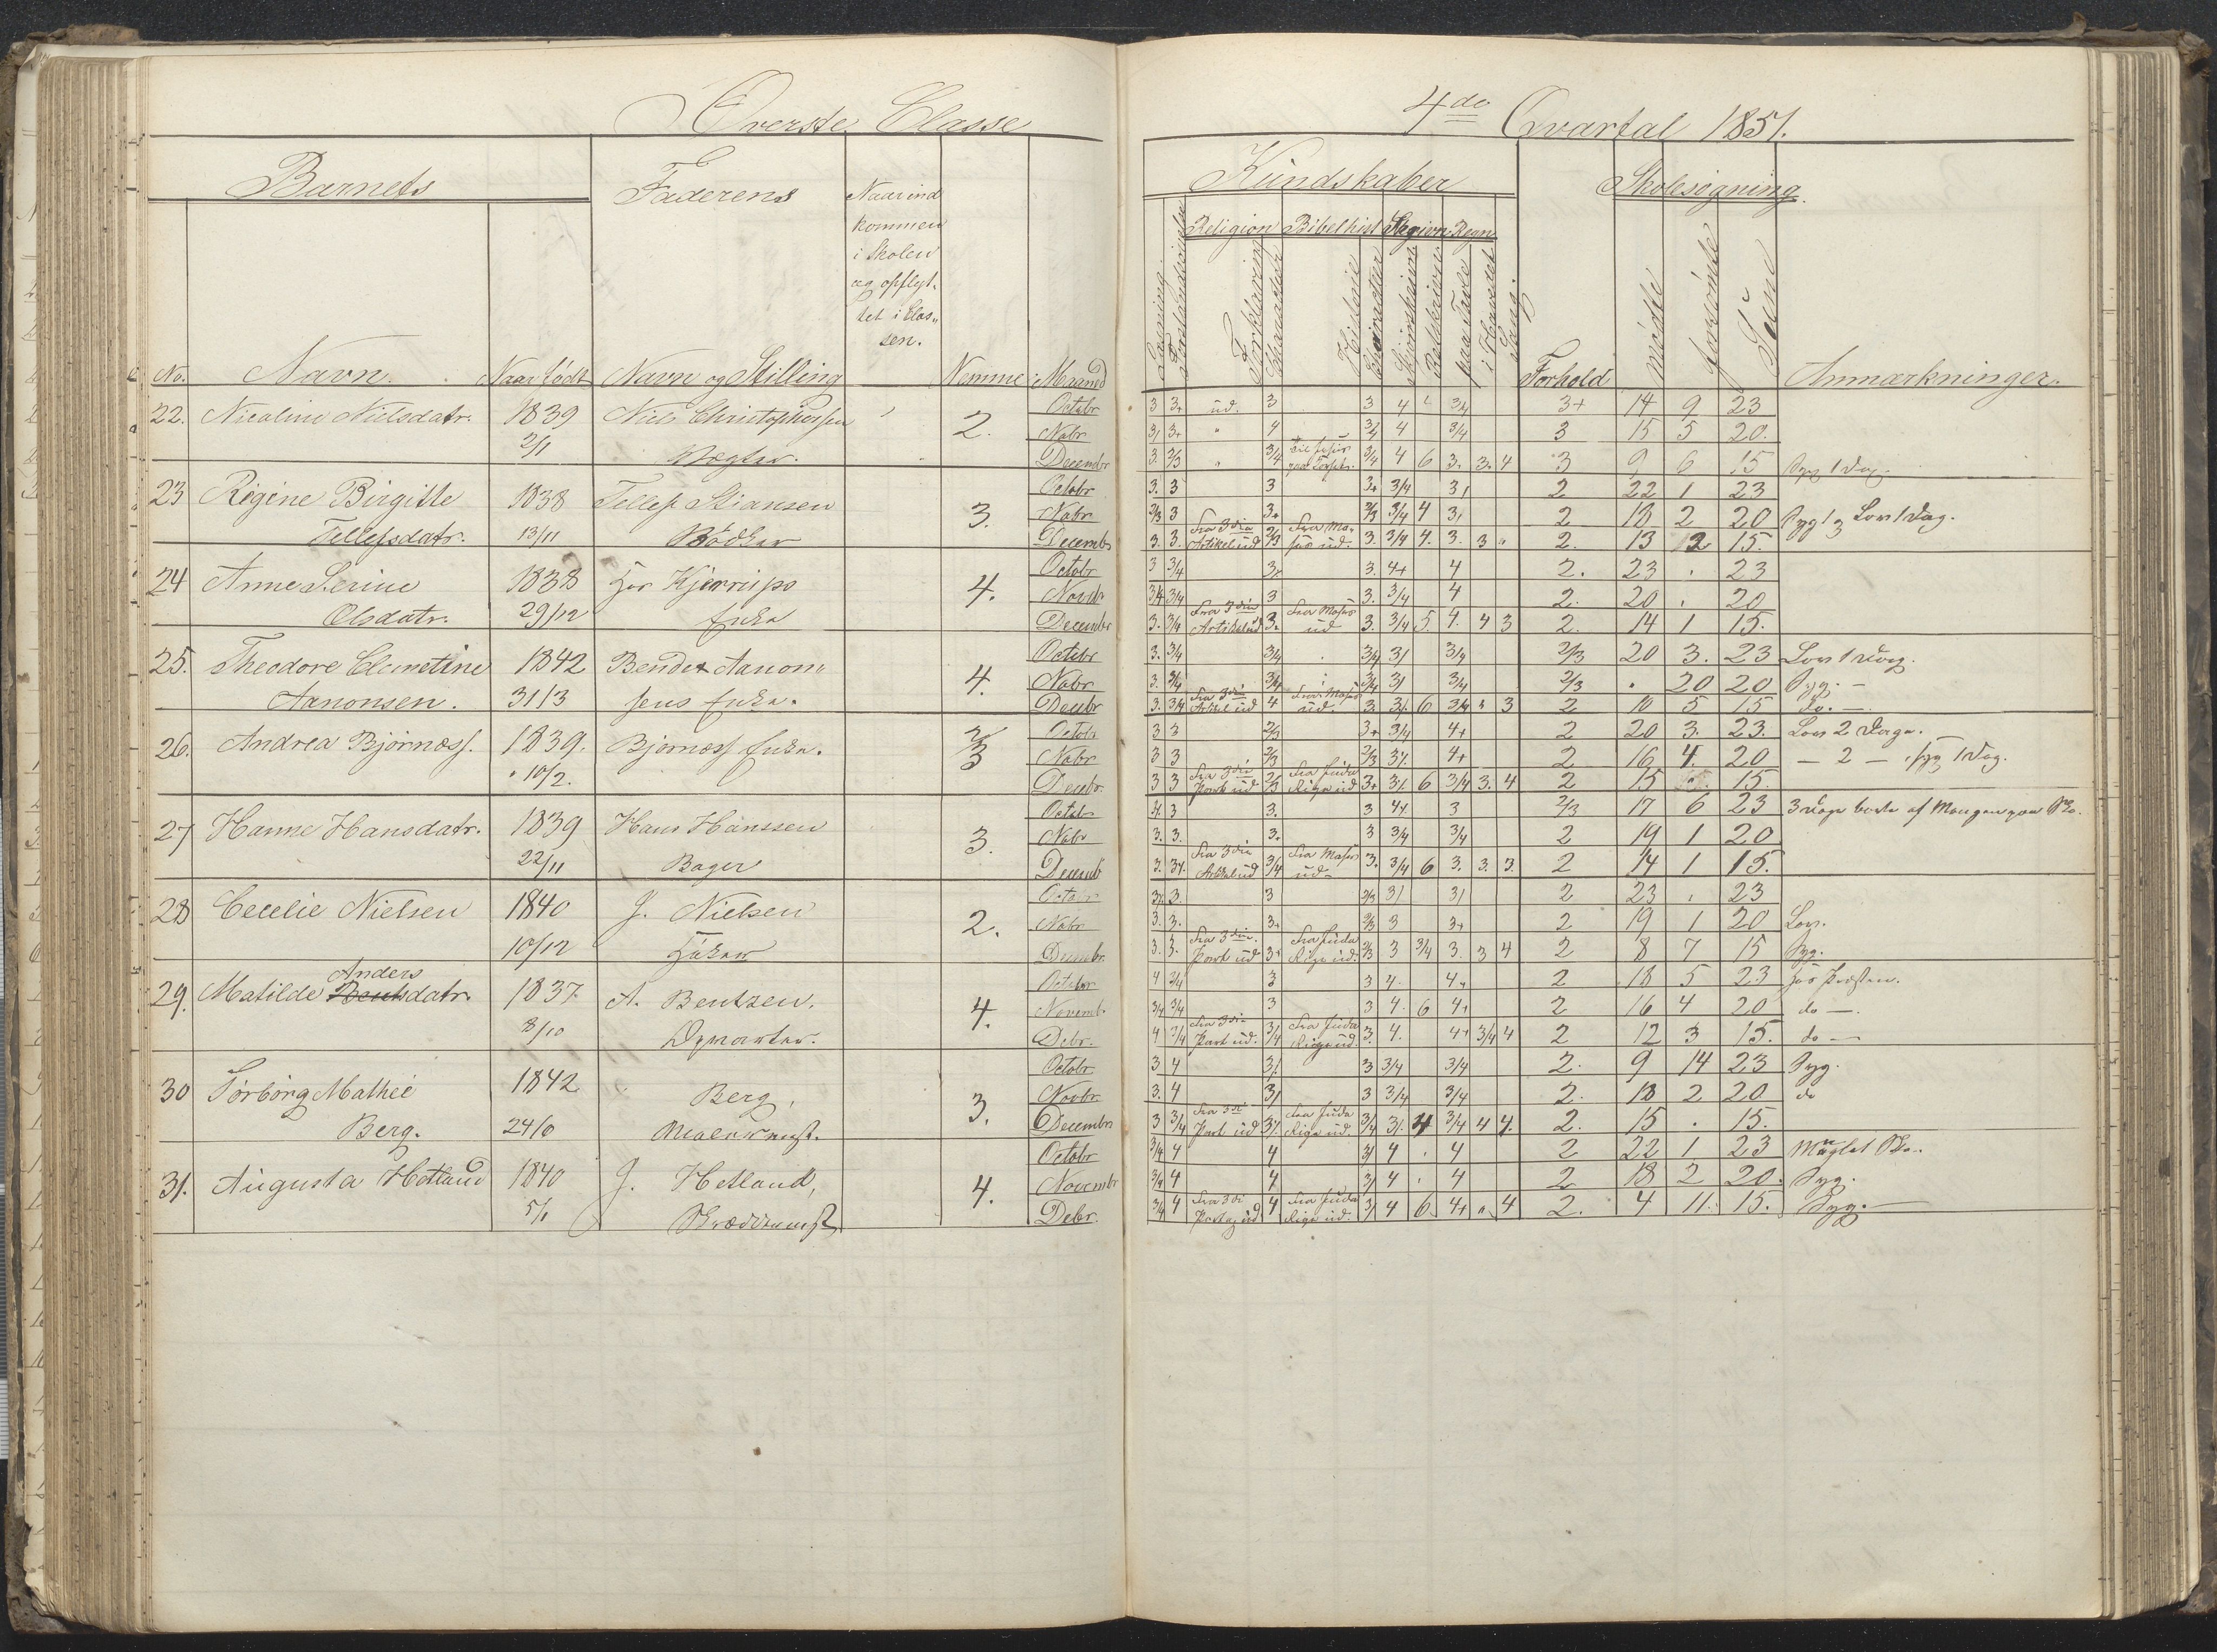 Øverste Classe
Barnets
Faderens
Naar ind
kommen
i Skolen
og opflyt-
tet i Clas„
sen.
No. Navn. Naar født Navn og Stilling Nemme Maaned
22. Nicoline Nielsdatr. 1839 Niels Christophersen 2. Octobr
2/1 Vægter. Nobr
Decembr
23 Regine Birgitte 1838 Tellef Stiansen 3. Octobr
Tellefsdatr. 13/11 Bødker Nobr
Decembr
24 Anne Serine 1838 Hos Kjerrups 4. Octobr
Olsdatr. 29/12 Enke Novbr
Decembr
25. Theodore Clemetine 1842 Bender Aanon„ 4. Octobr
Aanonsen. 31/3 sens Enke. Nobr
Decbr
26. Andrea Bjørnæss. 1839. Bjørnæss Enke. 2/3 Octobr
10/2. Nobr
Decbr.
27 Hanne Hansdatr. 1839 Hans Hanssen 3. Octobr
22/11 Bager Nobr
Decemb
28 Cecelie Nielsen 1840 J. Nielsen 2. Octobr
10/12 Nobr
Decembr.
29. Matilde Anders Bentsdatr. 1837 A. Bentzen. 4. Octobr
8/10 Novemb.
Debr.
30 Torborg Mathee 1842 Berg, 3. Octobr
Berg. 24/6 Novbr
Decembr
31. Augusta Hetland 1840 J. Hetland, 4. Octobr
5/1 Novembr
Debr.
4de Qvartal 1851.
Kundskaber
Skolesøgning.
Religion Bibelhist Regn.
Læsning. Forstandsøvelse Forklaring Charakter Historie Charakter Skjønskrivn. Retskrivn. paa Tavle i Hovedet Sang. Forhold mødte forsømte Sum Anmærkninger.
3 3+ ud. 3 3 4 3/4 3+ 14 9 23
3/ 3+ " 4 3/4 4 3/4 3 15 5 20.
3. 2/3 " 3/4 3/4 4 6 3. 3. 4 3 9 6 15 Syg 1 Dag.
3. 3 3 3+ 3/4 3/ 2 22 1 23
2/3 3 3+ 2/3 3/4 4 3/ 2 18 2 20 Lov 1 Dag.
3. 3. Fra 3die Artikel ud 2/3 Fra Mo- ses ud. 3. 3/4 4. 3. 3 " 2. 13 2 15.
3 3/4 3. 4+ 4 2. 23 . 23
3/4 3/4 3 3. 3/4 4 2. 20 . 20
3. 3/4 Fra 3die Artikel ud 3. Fra Moses ud 3. 3/4 5. 4. 4 3 2. 14 1 15.
3. 3/4 3/4 3/4 3/ 3/4 2/3 20 3. 23 Lov 1 Dag.
3. 3/4 3/4 3/4 3/ 3/4 2/3 . 20 20 Syg. -
3. 3/4 Fra 3die Artikel ud 4 Fra Moses ud. 6 3/4 3 2 10 5 15 do. —
3 3 2/3 3+ 3/4 4+ 2 20 3. 23. Lov 2 Dage.
3 3 2/3 2/3 4+ 2 16 4. 20 — 2 —, Syg 1 Dag.
3 3 Fra 3die Part ud 2/3 Fra Juda Rige ud 3+ 6 3/4 3. 4 2 15 15.
3 3. 3 3 2/3 17 6 23 3 Dage borte af Mangel paa Sko.
3. 3. 3. 3 3/4 3/4 2 19 1 20
3. Fra 3die Artikel ud 3/4 Fra Moses ud- 3. 3/4 6 3. 3. 3. 2 14 1 15.
3. 3 2/3 3/ 3/ 2 23 . 23
3. 3. 3+ 2/3 3 3+ 2 19 1 20 Lov.
3. 3. Fra 3die Part ud 3+ Fra Juda Rige ud. 2/3 3 3/4 3. 3 4 2 8 7 15 Syg.
4 3/4 3 3 4. 4+ 2 18 5 23 hos Præsten.
3/4 3/4 3 3 4. 6 4+ 2 16 4 20 do —.
4 3/4 Fra 3die Part ud. 3/4 Fra Juda Rige ud. 3. 4. 4+ 3/4 4 2 12 3 15. do —
3 4 3/ 3 3/4 3/4 2. 9 14 23 Syg.
3. 4 3/ 3 3/4 3/4 2. 18 2 20 do
3 3/4 Fra 3di Part ud Fra Juda Rige ud. 3/4 4 3/4 4 4. 2. 15 . 15.
3/4 4 4 3/ 4 . 4 2 22 1 23 Manglet Sko.
3/4 4 4 3/ 4 . 4 2 18 2 20. Syg.
3/4 4 Fra 3di Part ud 4 Fra Juda Rige ud. 3/ 4 6 4+ " 4 2. 4 11. 15. Syg. —